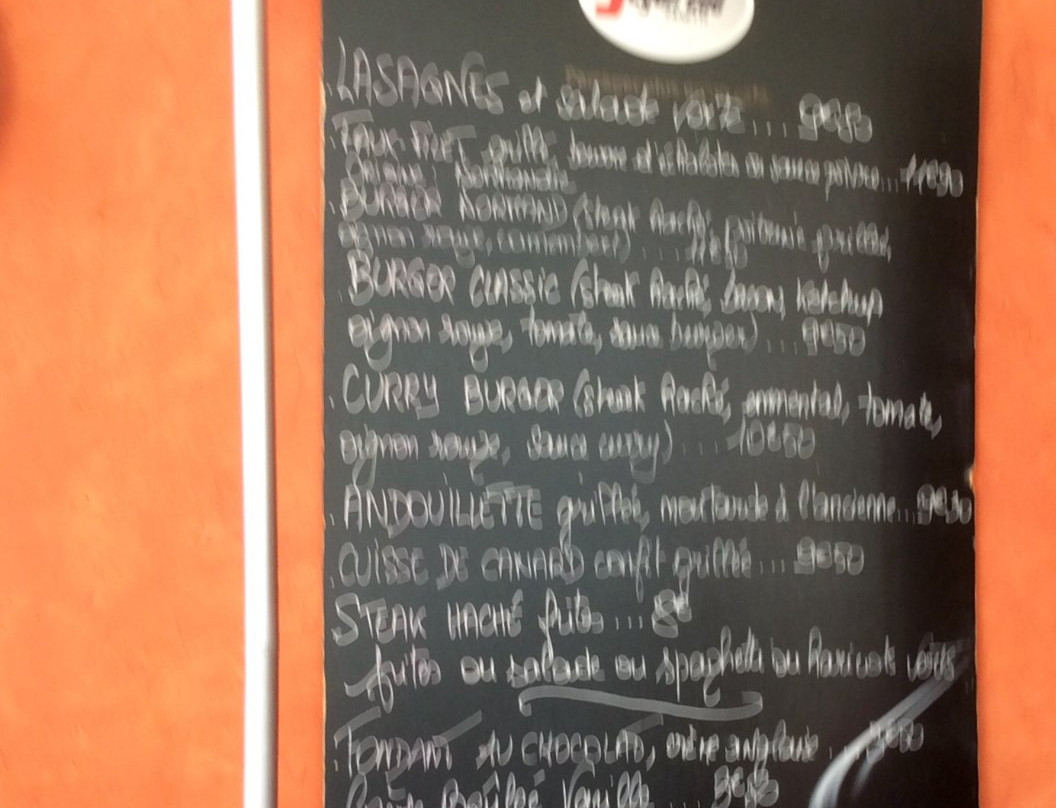 LASAGNES et salade verte ....
FAUX-FILET grillé, beurre d'échalotes ou sauce poivre... 11€90
Normandie
BURGER NORMAND (steak haché, grillée,
oignon rouge, camembert) ....
BURGER CLASSIC (steak haché, bacon, ketchup
oignon rouge, tomate, sauce burger) .... 9€50
CURRY BURGER (steak haché, emmental, tomate,
oignon rouge, sauce curry) .... 10€50
ANDOUILLETTE grillée, moutarde à l'ancienne... 9€50
CUISSE DE CANARD confit grillée ... 9€50
STEAK HACHÉ frites ... 8€
frites ou salade ou spaghetti ou haricots verts
FONDANT AU CHOCOLAT, crème anglaise ... 3€50
Vanille 3€50